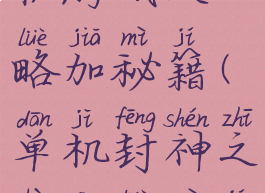 lüè jiā mì jí
略加秘籍(
dān jì fēng shén zhī
单机封神之